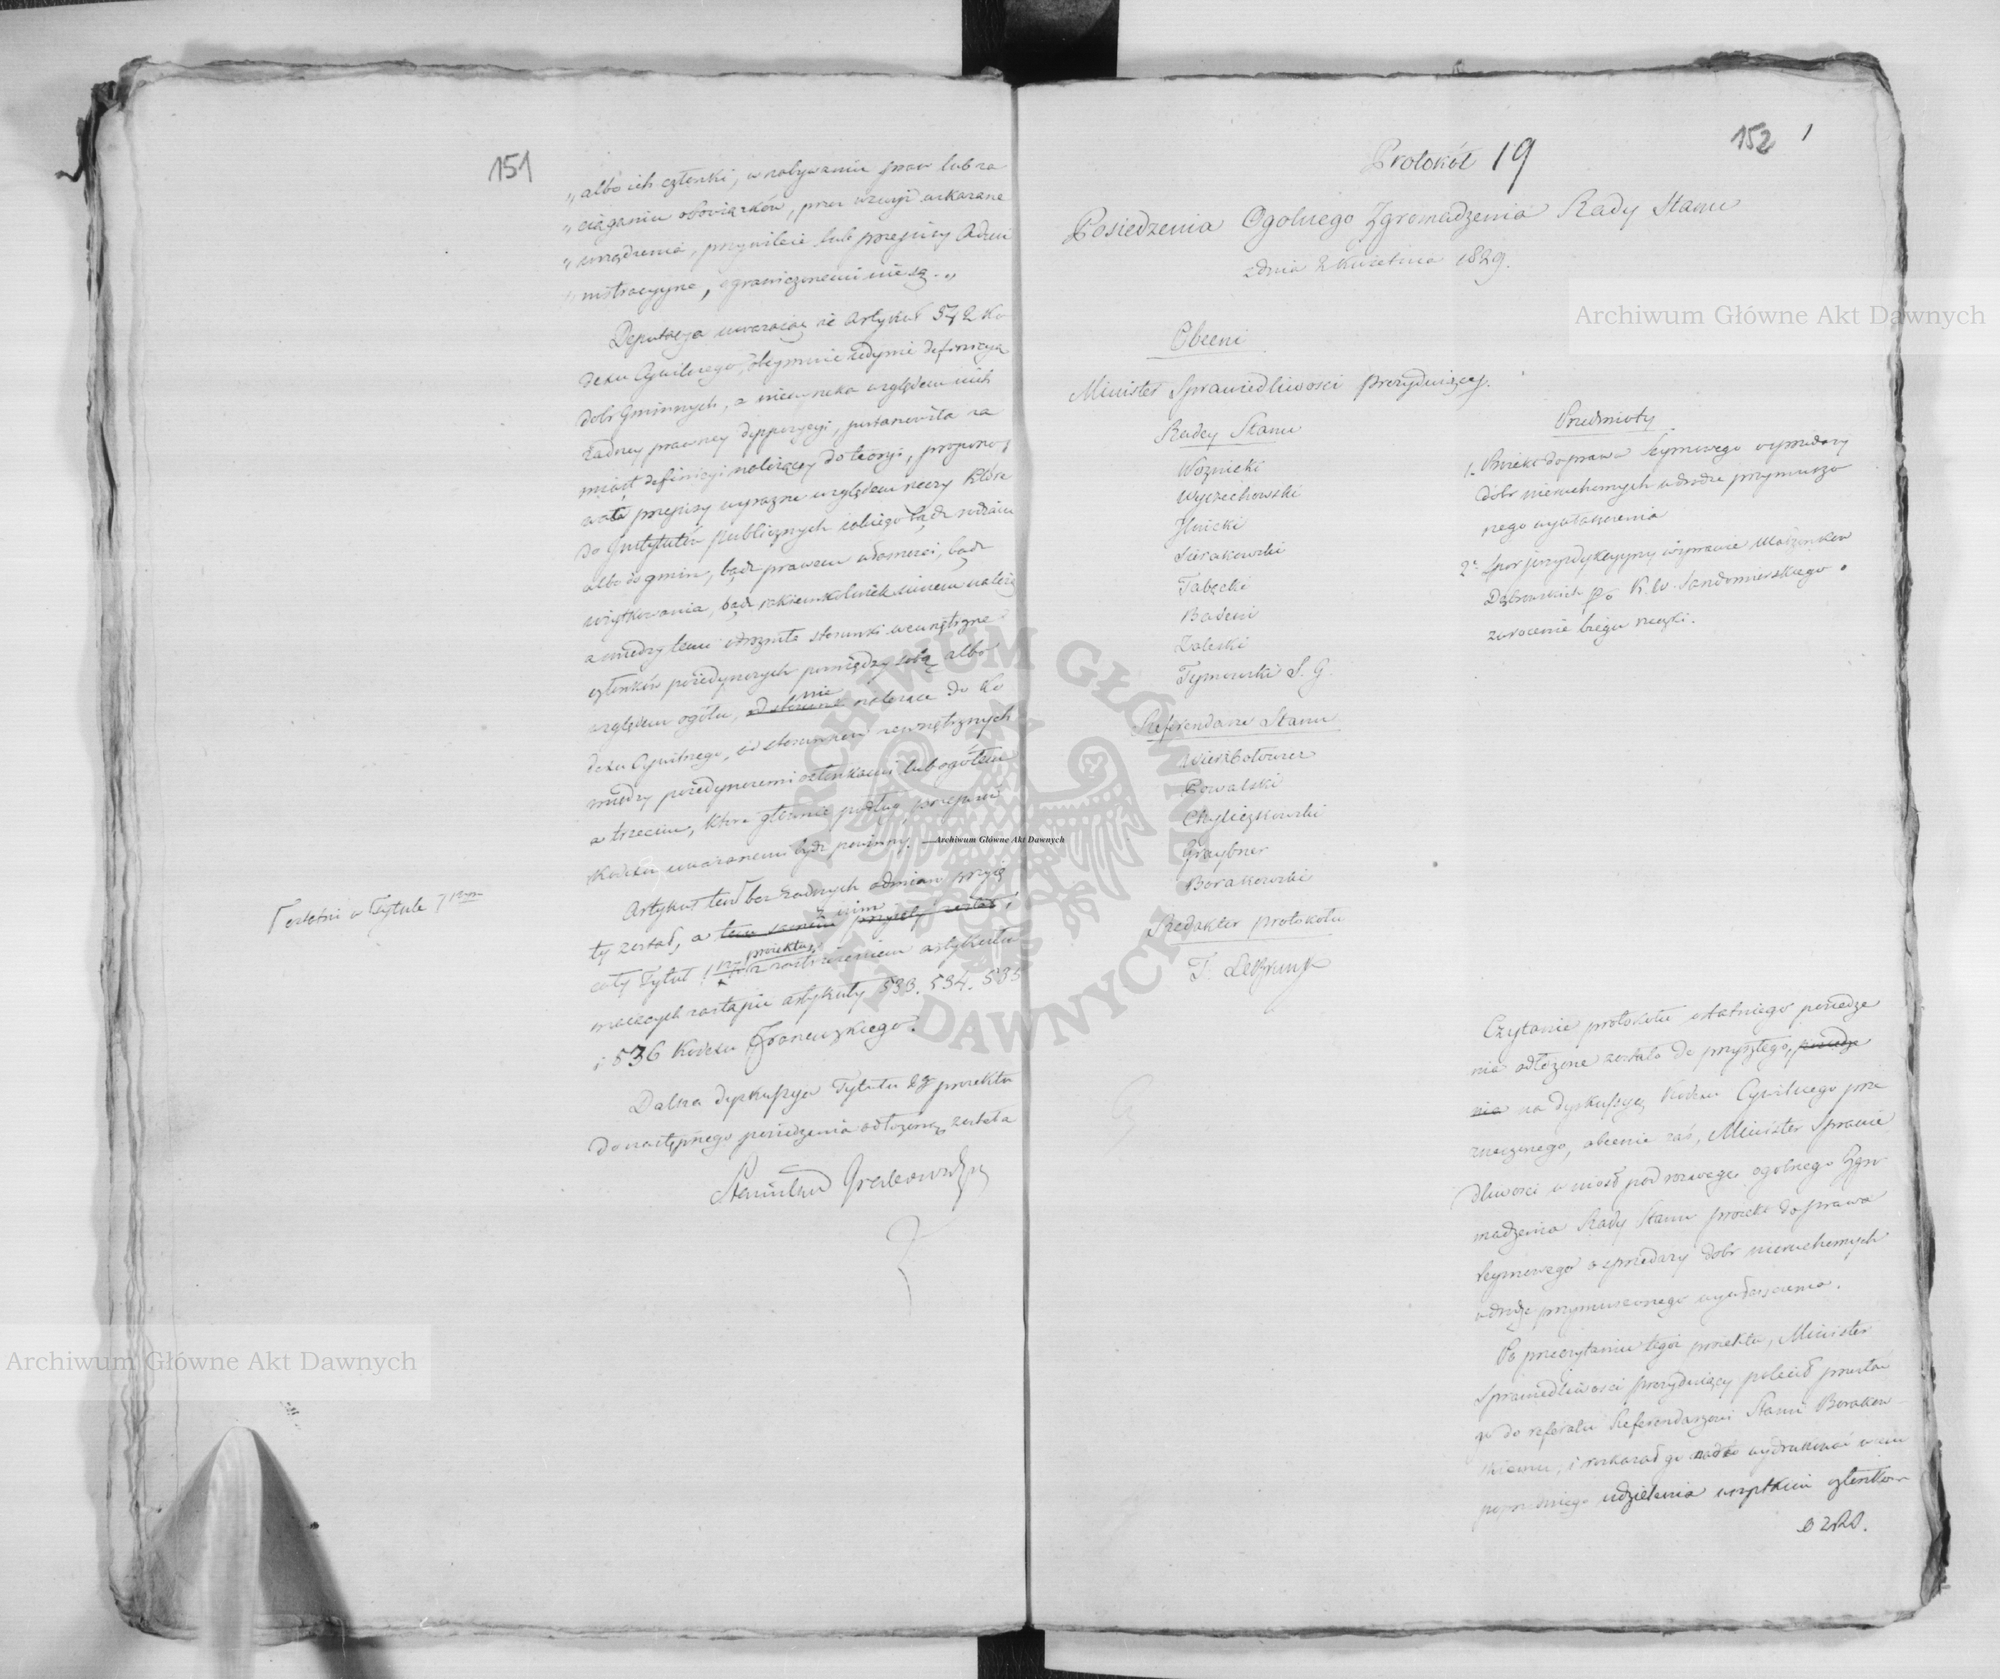 151
„ albo ich członki, w nabywaniu praw lub za
„ ciąganiu obowiązków, przez wzwyż wskazane
„ urządzenia, przywileie lub przepisy Admi
„ nistracyyne, ograniczonemi nie są. „
Deputacja uważaiąc że Artykuł 542 Ko
dexu Cywilnego, obeymuie iedynie definicyą
dóbr Gminnych, a nie względem nich
żadney prawney dyspozycyi, postanowiła za
miast definicyi należącey do teoryi, propono
wać przepisy wyraźne względem rzeczy które
do Instytutów publicznych iakiego bądź rodzaiu
albo do gmin, bądź prawem własności, bądź
użytkowania, bądź iakiemkolwiek innem należą
a między temi odróżniła stosunki wewnętrzne
członków poiedynczych pomiędzy sobą albo
względem ogółu, nie należące do Ko
dexu Cywilnego, od stosunków zewnętrznych
między poiedynczemi członkami lub ogółem
a trzecim, które głównie podług przepisów
Kodexu uważanemi bydź powinny. —
Artykuł ten bez żadnych odmian przyię
ty został, a z nim przyięty został i
ostatni w Tytule 7mym
cały Tytuł projektu, z zastrzeżeniem artykułu
maiących zastąpić artykuły 533. 534. 535
i 536 Kodexu Francuzkiego.
Dalsza dyskussya Tytułu 2go proiektu
do następnego posiedzenia odłożoną została
Stanisław Grabowski
152 1
Protokół 19
Posiedzenia Ogolnego Zgromadzenia Rady Stanu
z dnia 2 Kwietnia 1829.
Obecni
Minister Sprawiedliwosci Prezyduiący.
Radcy Stanu
Woznicki
Wyczechowski
Hnicki
Sierakowski
Tabęcki
Badeni
Zaleski
Tymowski S. G.
Referendarze Stanu
Wierzbołowicz
Kowalski
Chyliczkowski
Graybner
Borakowski
Redaktor protokołu
T. LeBrun
Przedmioty
1. Proiekt do prawa Seymowego o sprzedaży
dóbr nieruchomych w drodze przymuszo
nego wywłaszczenia
2. Spor jurysdykcyyny w sprawie Małżonków
Dąbrowskich Po K. W. Sandomierskiego o
zwrocenie biegu rzeki.
Czytanie protokołu ostatniego posiedze
nia odłożone zostało do przyszłego, posiedze
nia na dyskussyą Kodexu Cywilnego prze
znaczonego, obecnie zaś, Minister Sprawie
dliwosci wniosł pod rozwagę ogolnego Zgro
madzenia Rady Stanu proiekt do prawa
Seymowego o sprzedaży dobr nieruchomych
w drodze przymuszonego wywłaszczenia.
Po przeczytaniu tegoż proiektu, Minister
Sprawiedliwosci Prezyduiący polecił
go do referatu Referendarzowi Stanu Borakow
skiemu, i rozkazał go wydrukować w celu
poprzedniego udzielenia wszystkim członkom
O ZRS.
Archiwum Główne Akt Dawnych
Archiwum Główne Akt Dawnych
Archiwum Główne Akt Dawnych
ARCHIWUM GŁÓWNE AKT DAWNYCH